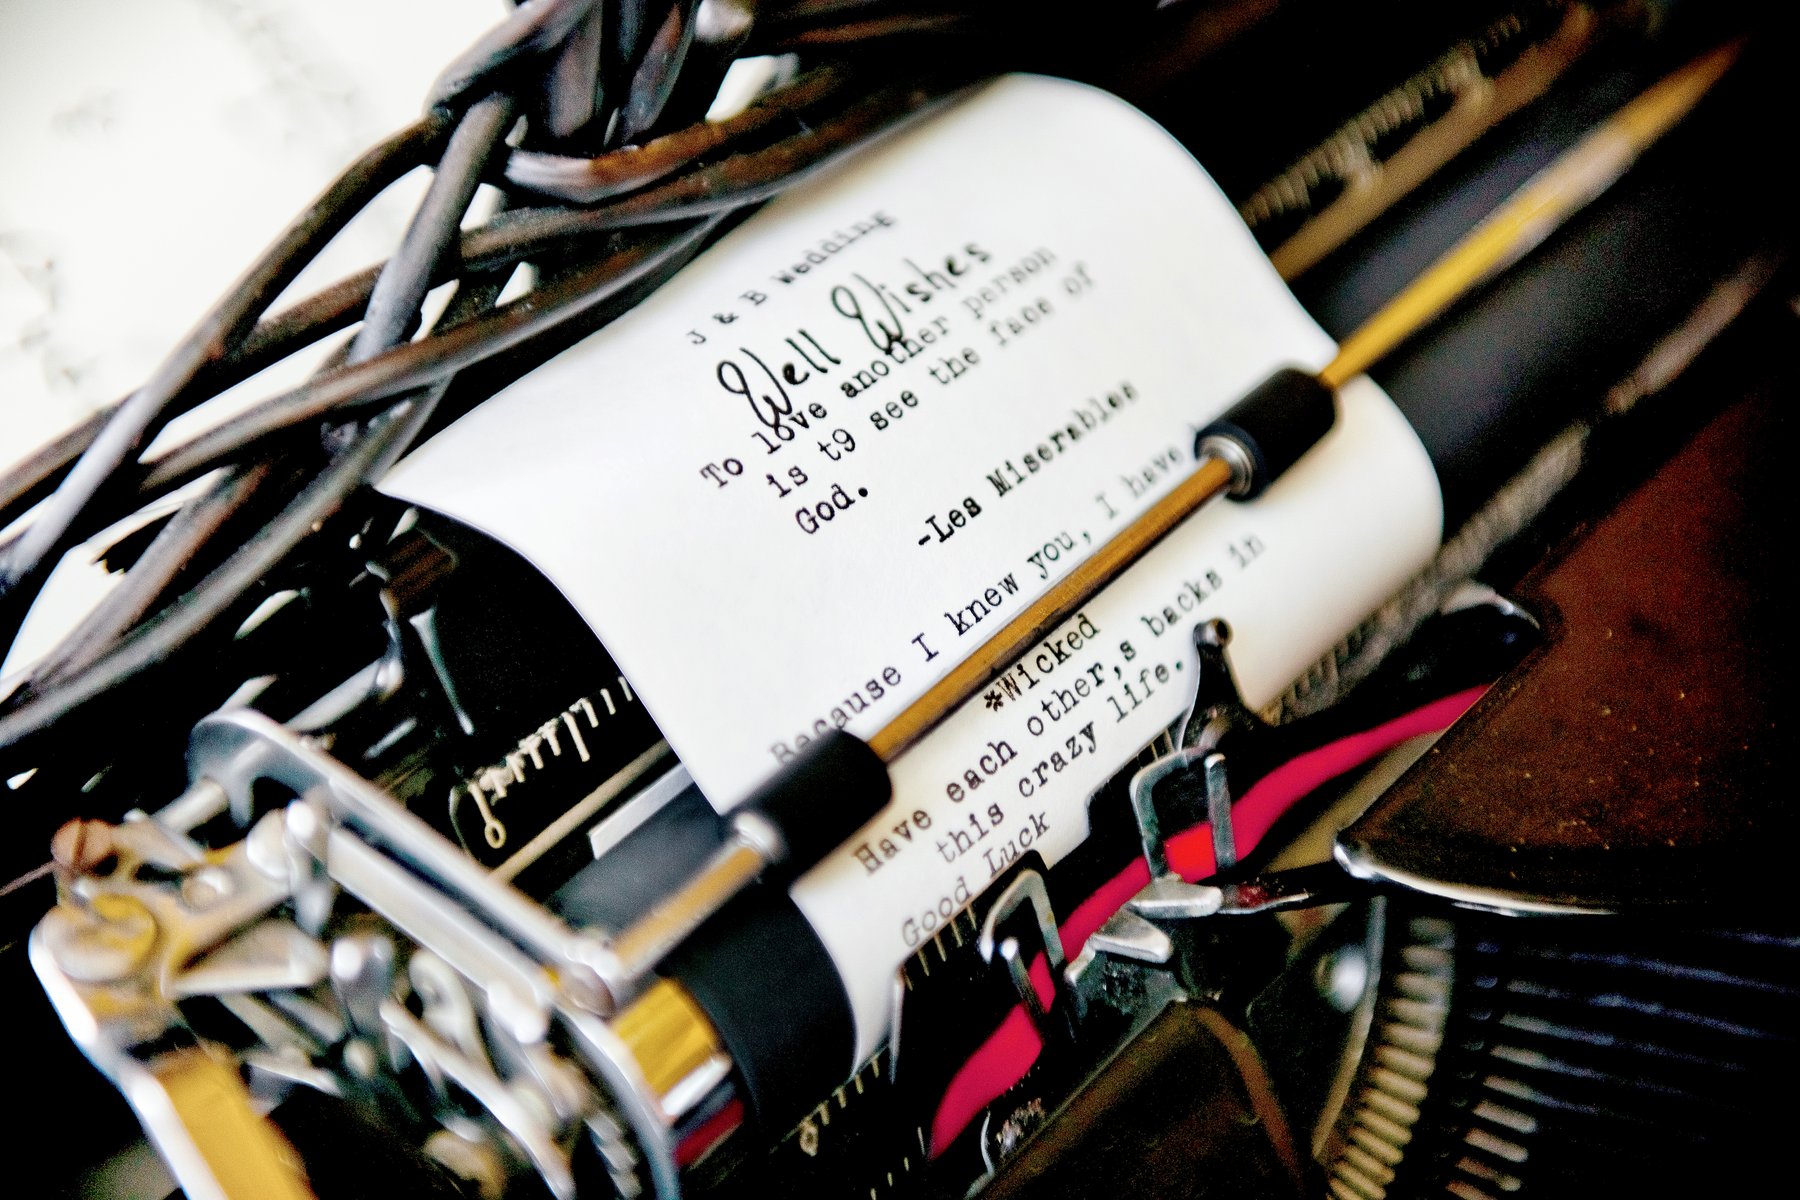 J & B Wedding
Well Wishes
To love another person
is t9 see the face of
God.
-Les Miserables
Because I knew you, I have
*Wicked
Have each other,s backs in
this crazy life.
Good Luck